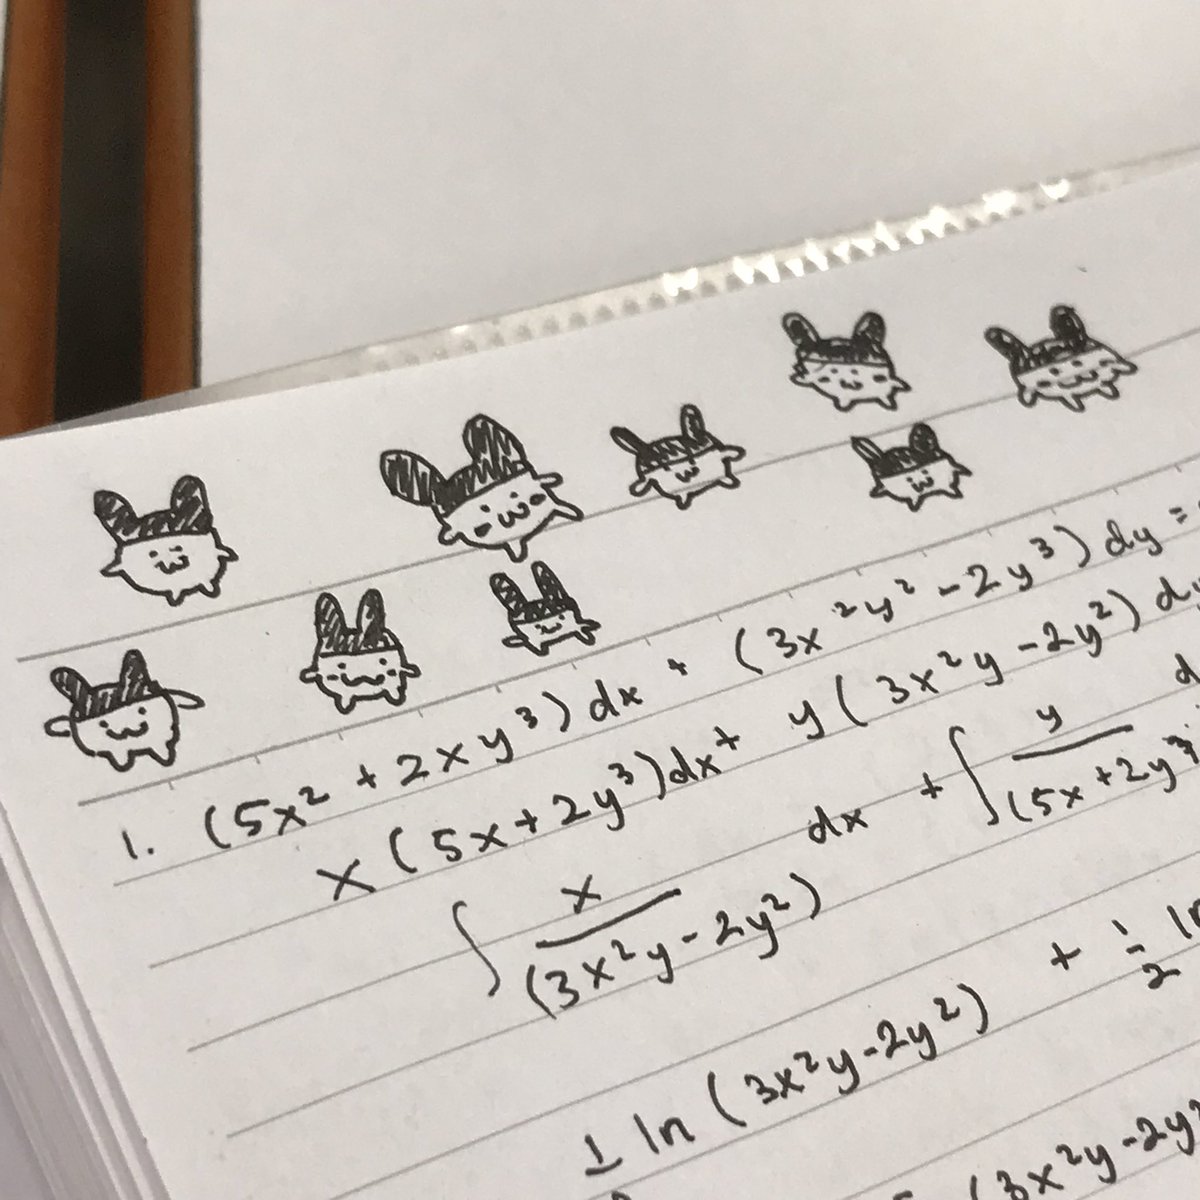 1. (5x² + 2xy³) dx + (3x²y² - 2y³) dy =
x (5x + 2y³) dx + y (3x²y - 2y²) dy
∫ x/(3x²y - 2y²) dx + ∫ y/(5x + 2y³) d
½ ln (3x²y - 2y²) + ½ ln
(3x²y - 2y²